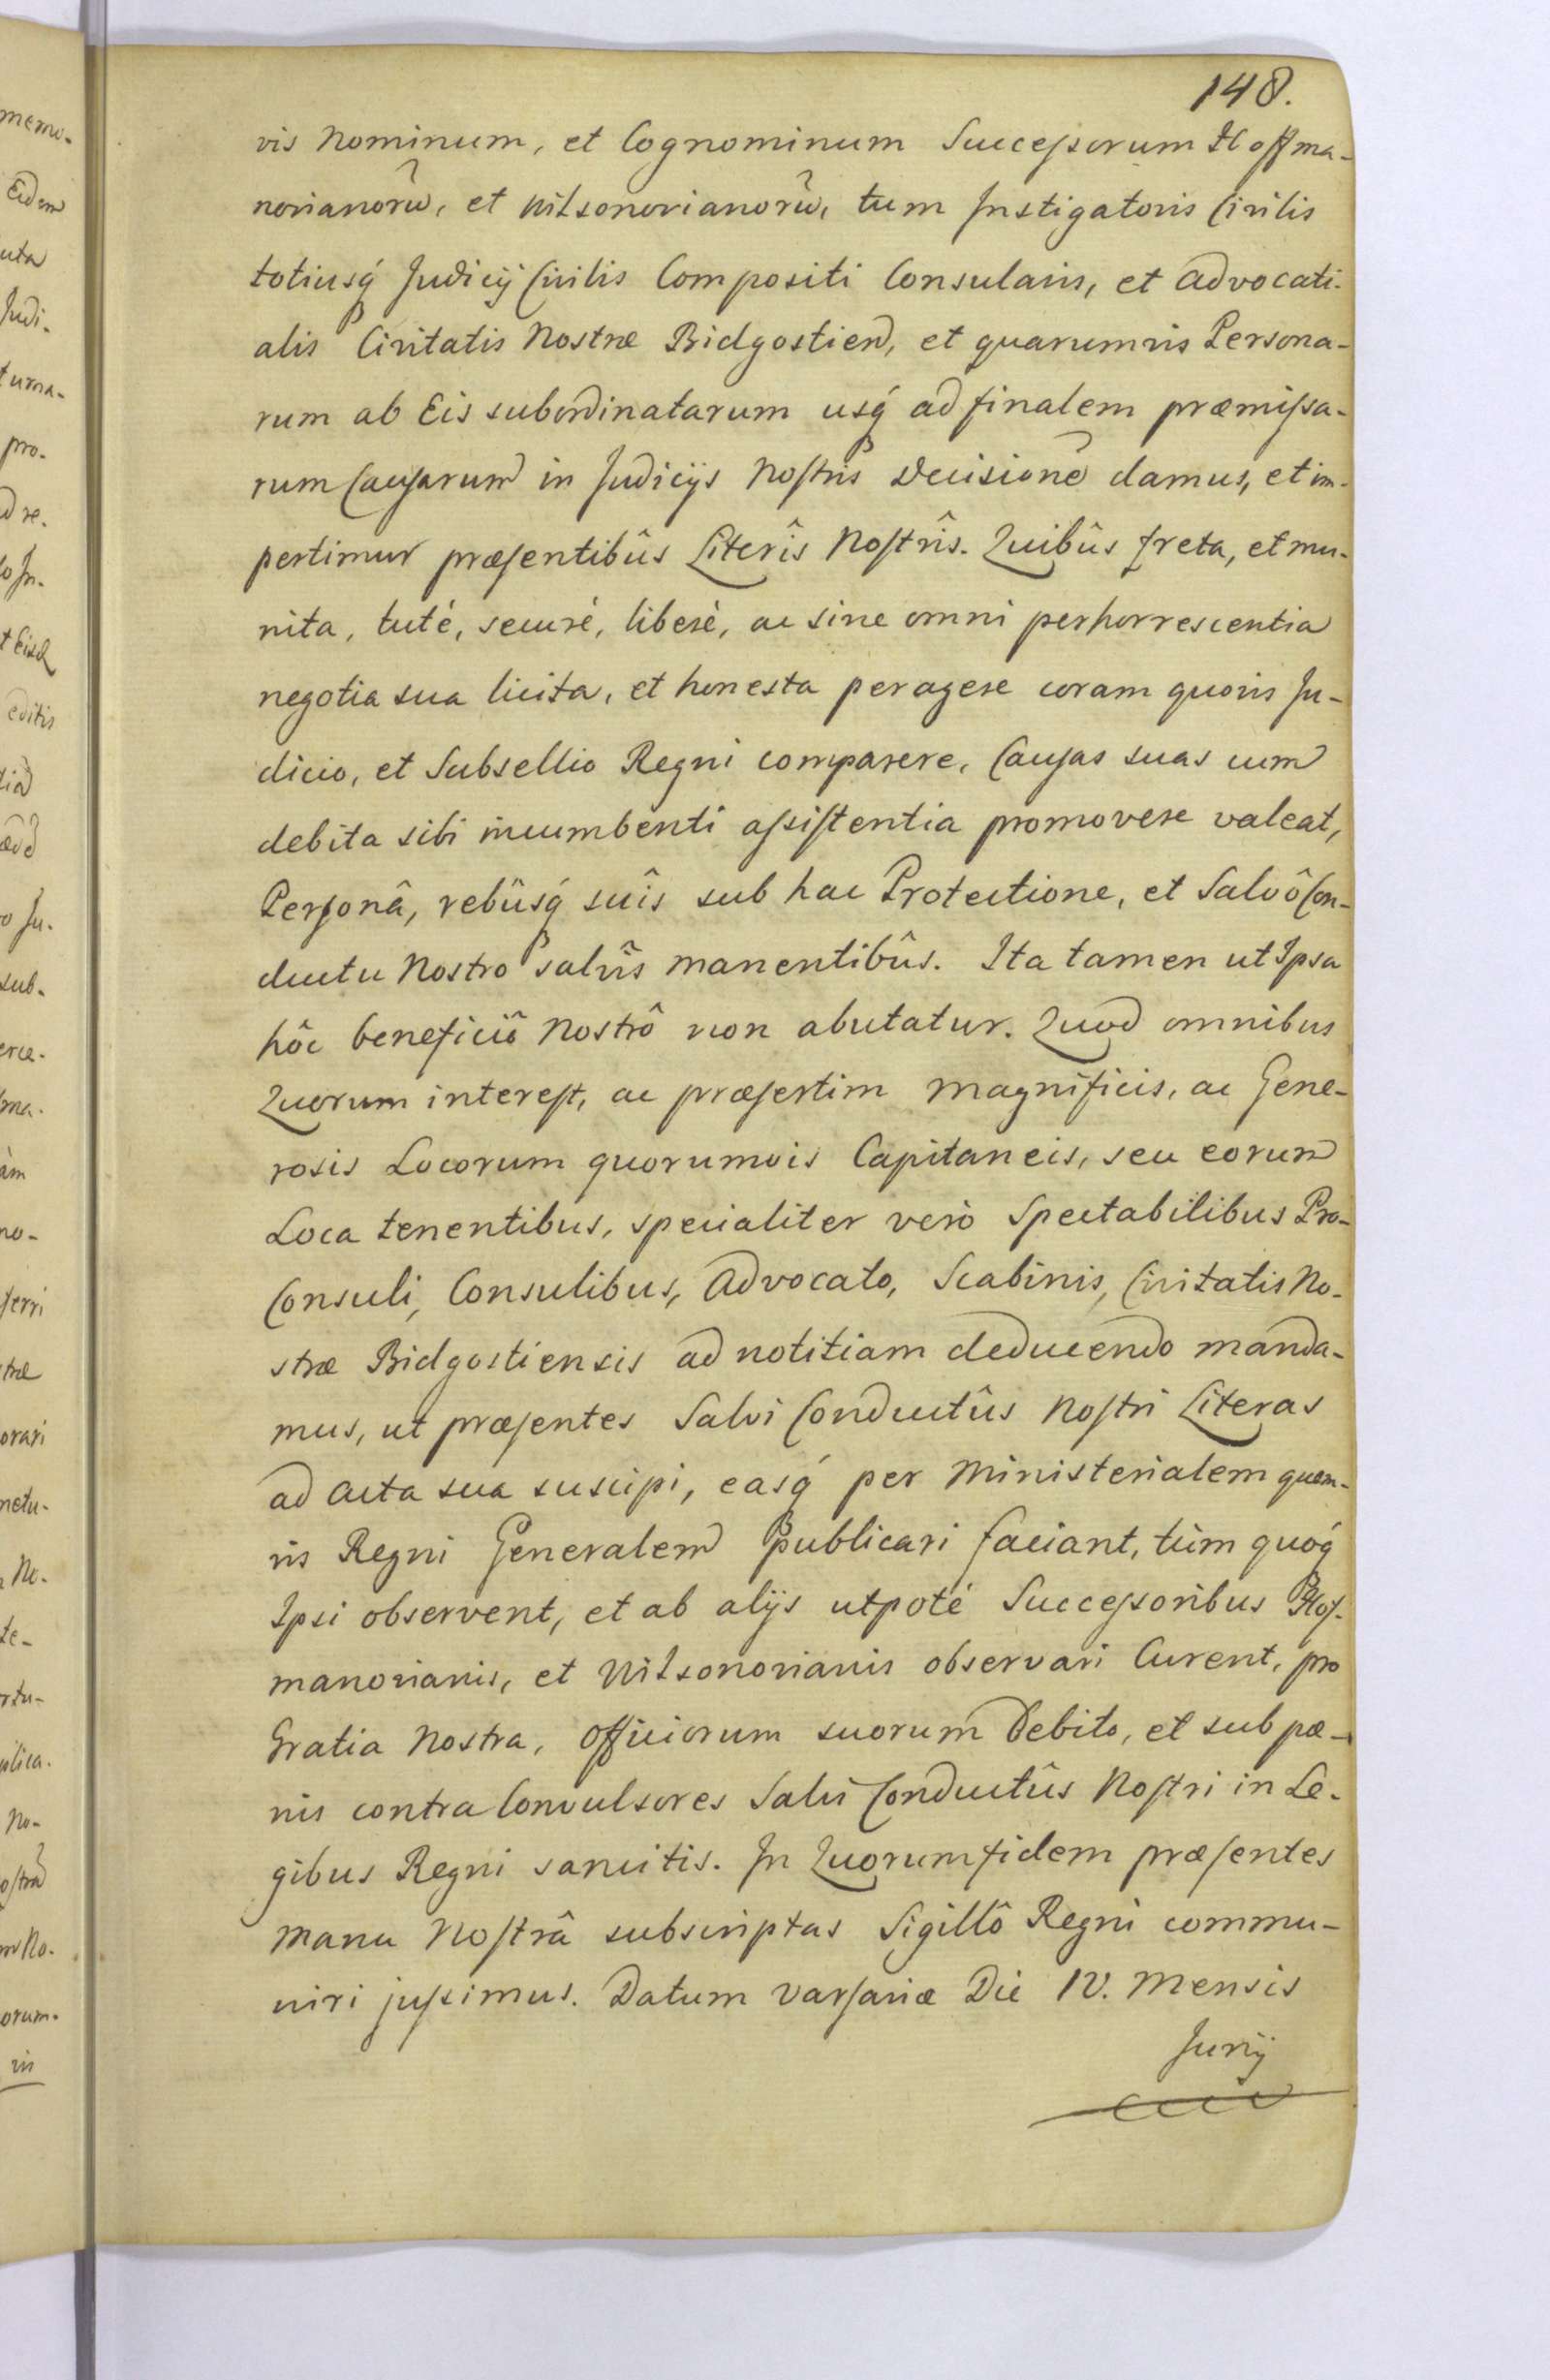 148.
vis Nominum, et Cognominum Succeſsorum Hoffma-
norianorũ, et Nilsonovianorũ, tum Instigatoris Civilis
totiusq́ Judicij Civilis Compositi Consularis, et Advocati-
alis Civitatis Nostræ Bidgostien, et quarumvis Persona-
rum ab Eis subordinatarum usq́ ad finalem præmiſsa-
rum Cauſarum in Judicijs Noſtris Decisionẽ damus, et im-
pertimur præſentibûs Literîs Noſtrîs. Quibûs freta, et mu-
nita, tuté, securé, liberè, ac sine omni perhorrescentia
negotia sua licita, et honesta peragere coram quovis Ju-
dicio, et Subsellio Regni comparere, Cauſas suas cum
debita sibi incumbenti aſsiſtentia promovere valeat,
Perſonâ, rebûsq́ suîs sub hac Protectione, et Salvô Con-
ductu Nostro salvîs manentibûs. Ita tamen ut Ipsa
hôc beneficiô Nostrô non abutatur. Quod omnibus
Quorum intereſt, ac præſertim Magnificis, ac Gene-
rosis Locorum quorumvis Capitaneis, seu eorum
Loca tenentibus, specialiter verò Spectabilibus Pro-
Consuli, Consulibus, Advocato, Scabinis, Civitatis No-
stræ Bidgostiensis ad notitiam deducendo manda-
mus, ut præſentes Salvi Conductûs Noſtri Literas
ad Acta sua suscipi, easq́ per Ministerialem quem-
vis Regni Generalem publicari faciant, tùm quoq́
Ipsi observent, et ab alijs utpoté Succeſsoribus Hof-
manorianis, et Nilsonovianis observari Curent, pro
Gratia Nostra, Officiorum suorum Debito, et sub pæ-
nis contra Convulsores Salvi Conductûs Noſtri in Le-
gibus Regni sancitis. In Quorum fidem præſentes
Manu Noſtrâ subscriptas Sigillô Regni commu-
niri juſsimus. Datum Varſaviæ Die IV. Mensis
Junij